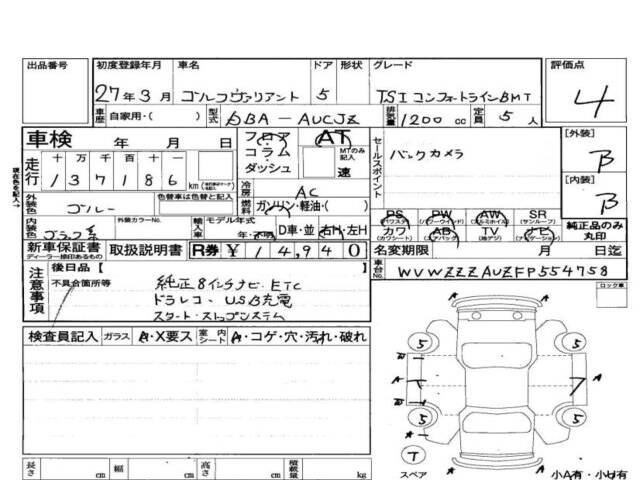 出品番号 初度登録年月 車名 ドア 形状 グレード 評価点
27年3月 ゴルフヴァリアント 5 TSIコンフォートラインBMT 4
車歴 自家用・( ) 型式 DBA-AUCJZ 排気量 1200cc 定員 5人
車検 年 月 日 フロア コラム ダッシュ AT MTのみ記入 速 セールスポイント バックカメラ [外装] B
走行 十 万 千 百 十 一
137186 km
冷房 AC [内装] B
外装色 ブルー 色替車は色替と記入 燃料 ガソリン・軽油・( )
PS PW AW SR
(パワステ) (パワーウインド) (アルミホイル) (サンルーフ)
内装色 ブラック系 外装カラーNo. 輸入車 モデル年式 年・不明 D車・並 右H・左H
カワ AB TV ナビ 純正品のみ丸印
(カワシート) (エアバック) (地デジ) (ナビゲーション)
新車保証書 取扱説明書 R券 ¥14,940 名変期限 月 日迄
ディーラー印はあるもの
現在色を記入。
車台No. WVWZZZAUZFP554758
注意事項 後日品 [ ]
不具合箇所等 純正8インチナビ ETC
ドラレコ、USB充電
スタート・ストップシステム
ロック車
検査員記入 ガラス A・X要ス 室内シート A・コゲ・穴・汚れ・破れ
5 5
A A
5 5
T
スペア
小A有・小U有
長さ cm 幅 cm 高さ cm 積載量 kg